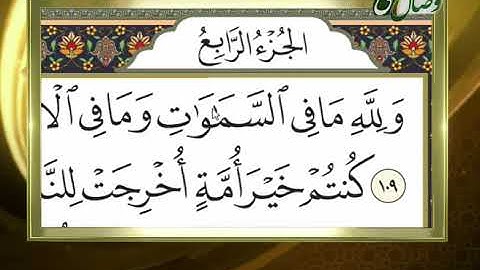 وصال
الجُزْءُ الرَّابِعُ
وَلِلَّهِ مَا فِي ٱلسَّمَٰوَٰتِ وَمَا فِي ٱلْأ
١٠٩ كُنتُمْ خَيْرَ أُمَّةٍ أُخْرِجَتْ لِلنَّا